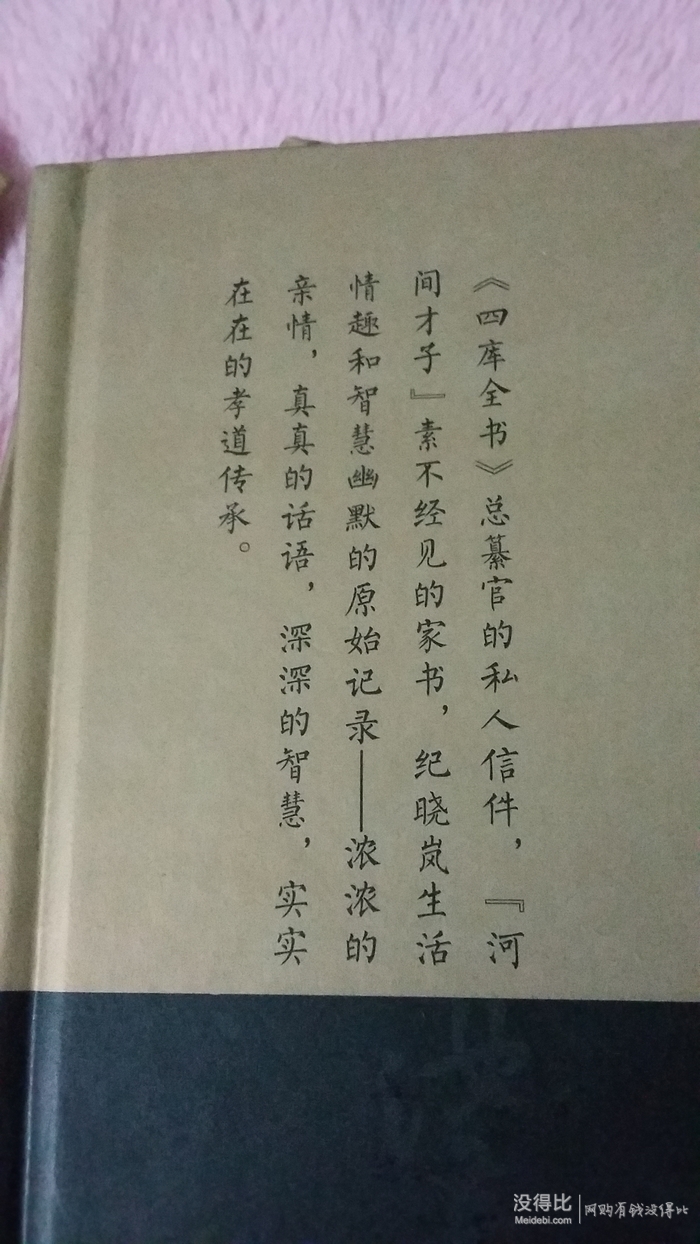 《四库全书》总纂官的私人信件，『河
间才子』素不经见的家书，纪晓岚生活
情趣和智慧幽默的原始记录——浓浓的
亲情，真真的话语，深深的智慧，实实
在在的孝道传承。
没得比
Meidebi.com
阿购有钱没得比